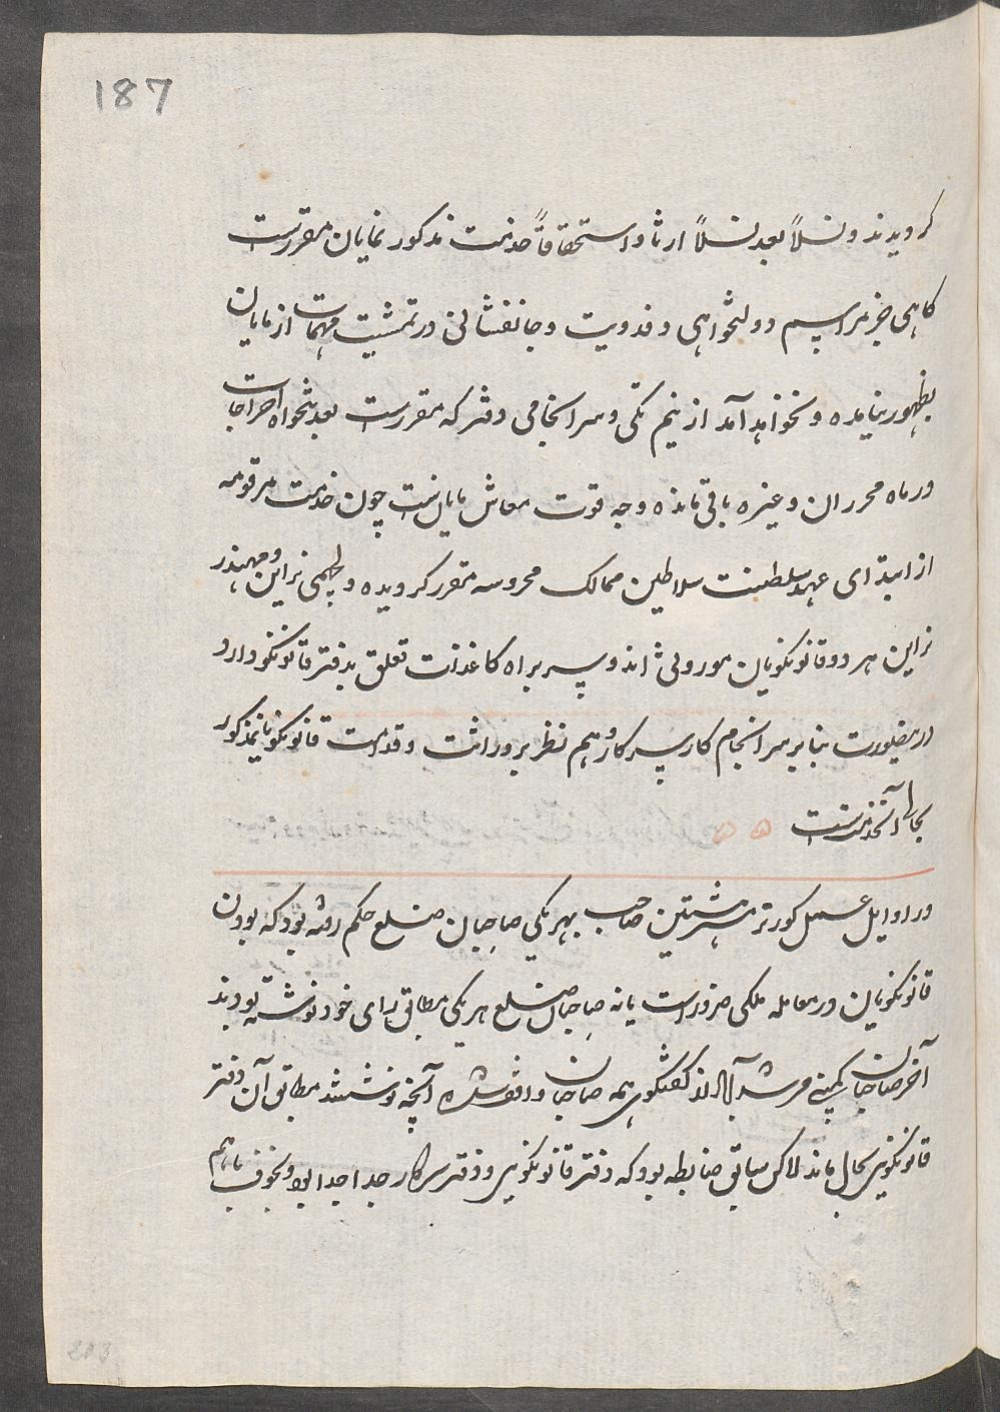 187
کردیدند و نسلاً بعد نسلاً ارثا و استحقاقاً خدمت مذکور نمایان مقررست
کاهی جز مراسم دولتخواهی و فدویت و جانفشانی در تمشیت مهمات از مایان
بظهور نیامده و نخواهد آمد از نیم تکی و سرانجامی دفتر که مقررست بعد تنخواه اخراجات
در ماه محرران و غیره باقی مانده وجه قوت معاش مایانست چون خدمت مرقومه
از ابتدای عهد سلطنت سلاطین ممالک محروسه مقرر کردیده و لچهمی نراین و مهندر
نراین هر دو قانونکویان موروثی اند و سر براه کاغذات تعلق بدفتر قانونکو دارد
درینصورت بنابر سرانجام کار سرکار و هم نظر بر وراثت و قدامت قانونکویان مذکور
بحالی آنخدمتست
در اوایل عمل کورنر هشتین صاحب بهر یکی صاحبان ضلع حکم رفته بود که بودن
قانونکویان در معامله ملکی ضرورست یا نه صاحبان ضلع هر یکی مطابق رای خود نوشته بودند
آخر صاحبان کمیتی مرشدآباد از کفتکوی همه صاحبان واقف شده آنچه نوشتند مطابق آن دفتر
قانونکوی بحال ماند لاکن سابق ضابطه بود که دفتر قانونکویی و دفتر سرکار جدا جدا بود و بخوف باهم
203